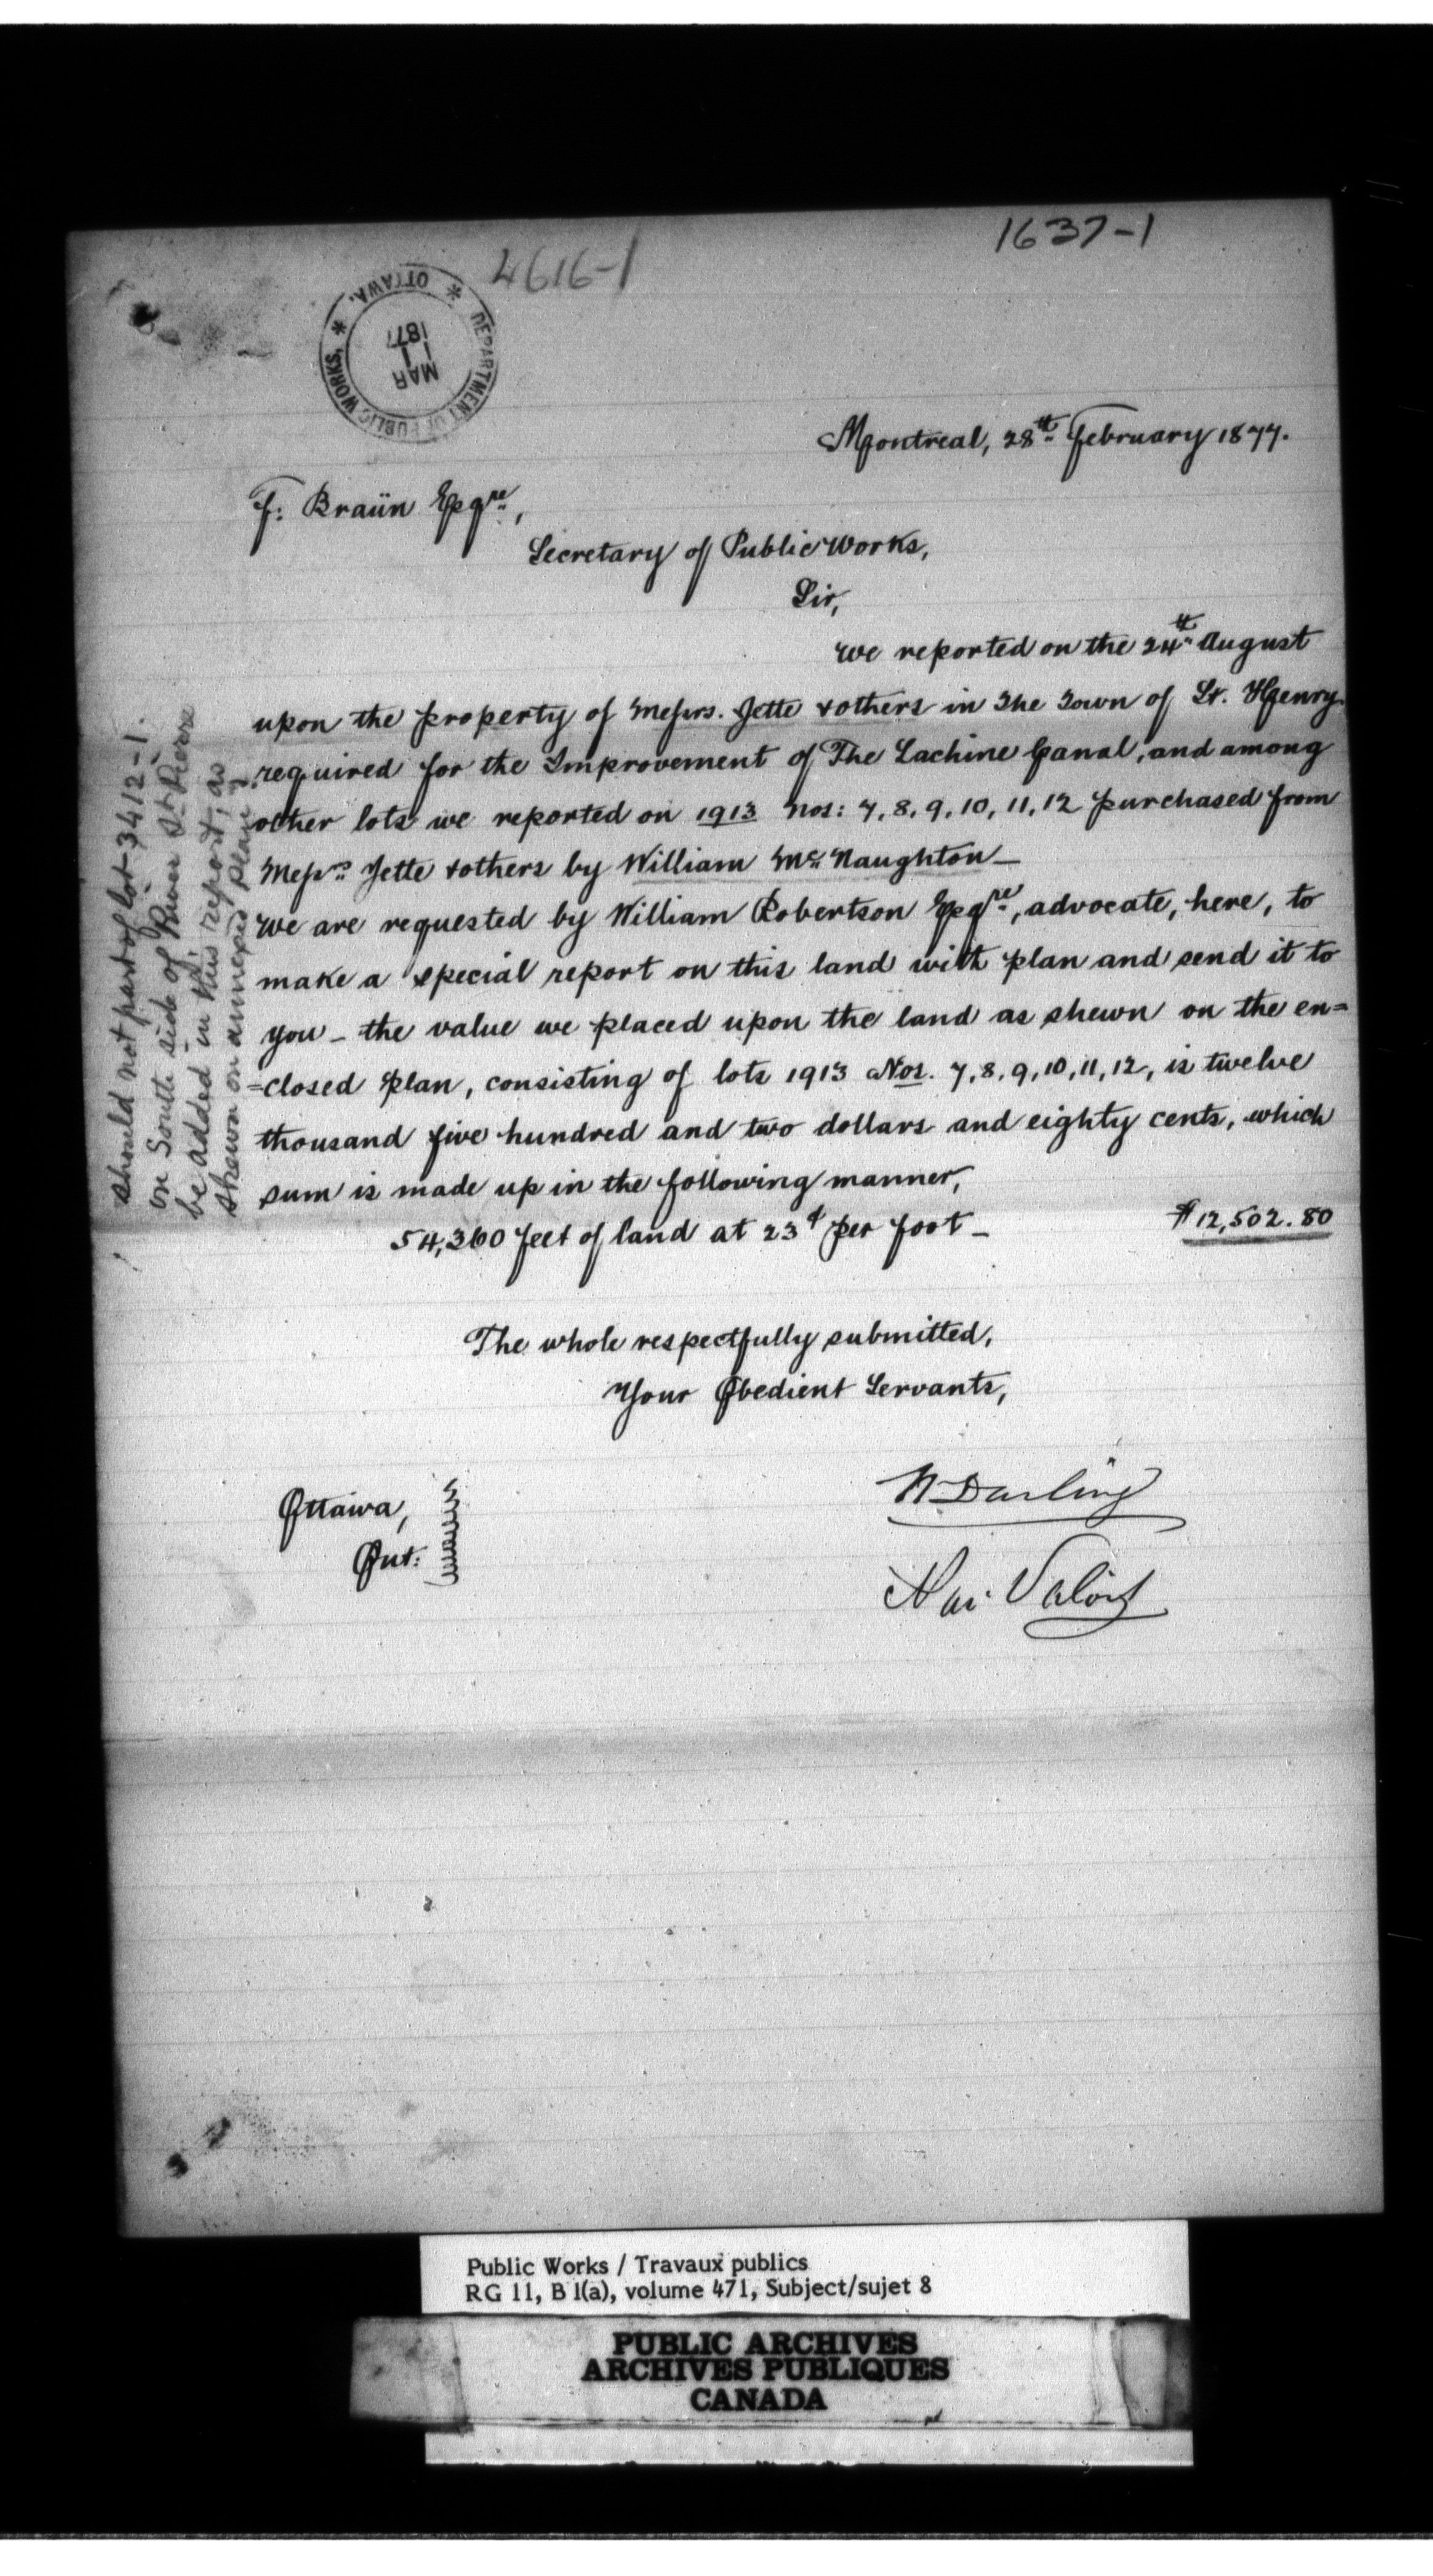 1637-1
4616-1
DEPARTMENT OF PUBLIC WORKS, * OTTAWA. *
MAR
1
1877
Montreal, 28th February 1877.
F: Braün Esqre,
Secretary of Public Works,
Sir,
We reported on the 24th August
upon the property of Messrs. Jette & others in The Town of St. Henry
required for the Improvement of The Lachine Canal, and among
other lots we reported on 1913 nos: 7, 8, 9, 10, 11, 12 purchased from
Messrs Jette & others by William Mc Naughton —
We are requested by William Robertson Esqre, advocate, here, to
make a special report on this land with plan and send it to
you — the value we placed upon the land as shewn on the en=
=closed plan, consisting of lots 1913 Nos. 7, 8, 9, 10, 11, 12, is twelve
thousand five hundred and two dollars and eighty cents, which
sum is made up in the following manner,
54,360 feet of land at 23¢ per foot — $12,502.80
The whole respectfully submitted,
Your Obedient Servants,
Ottawa,
Ont:
W. Darling
Nar. Valois
should not part of lot 3412-1.
on South side of River St Pierre
be added in this report, as
shewn on annexed plan ?
Public Works / Travaux publics
RG 11, B 1(a), volume 471, Subject/sujet 8
PUBLIC ARCHIVES
ARCHIVES PUBLIQUES
CANADA